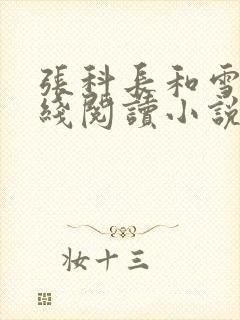 張科長和雪
綫閱讀小說
妝十三